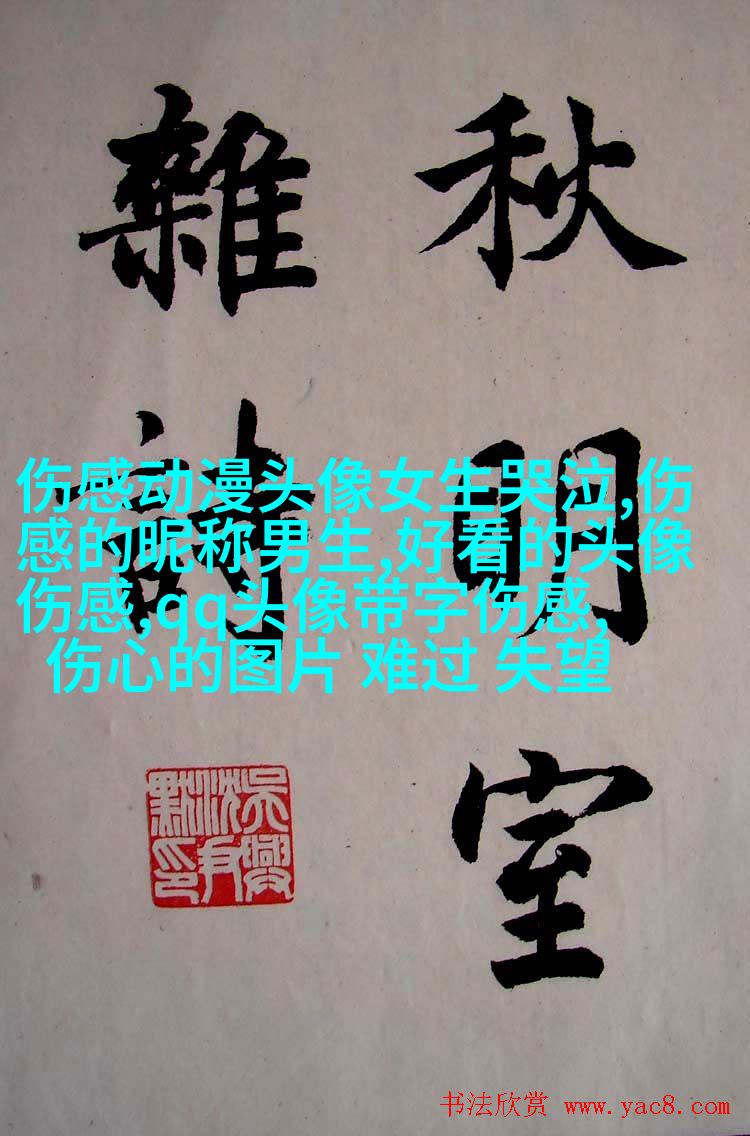 秋明室
雜詩
伤感动漫头像女生哭泣,伤
感的昵称男生,好看的头像
伤感,qq头像带字伤感,
伤心的图片 难过 失望
吳興
沈尹
默印
书法欣赏 www.yac8.com